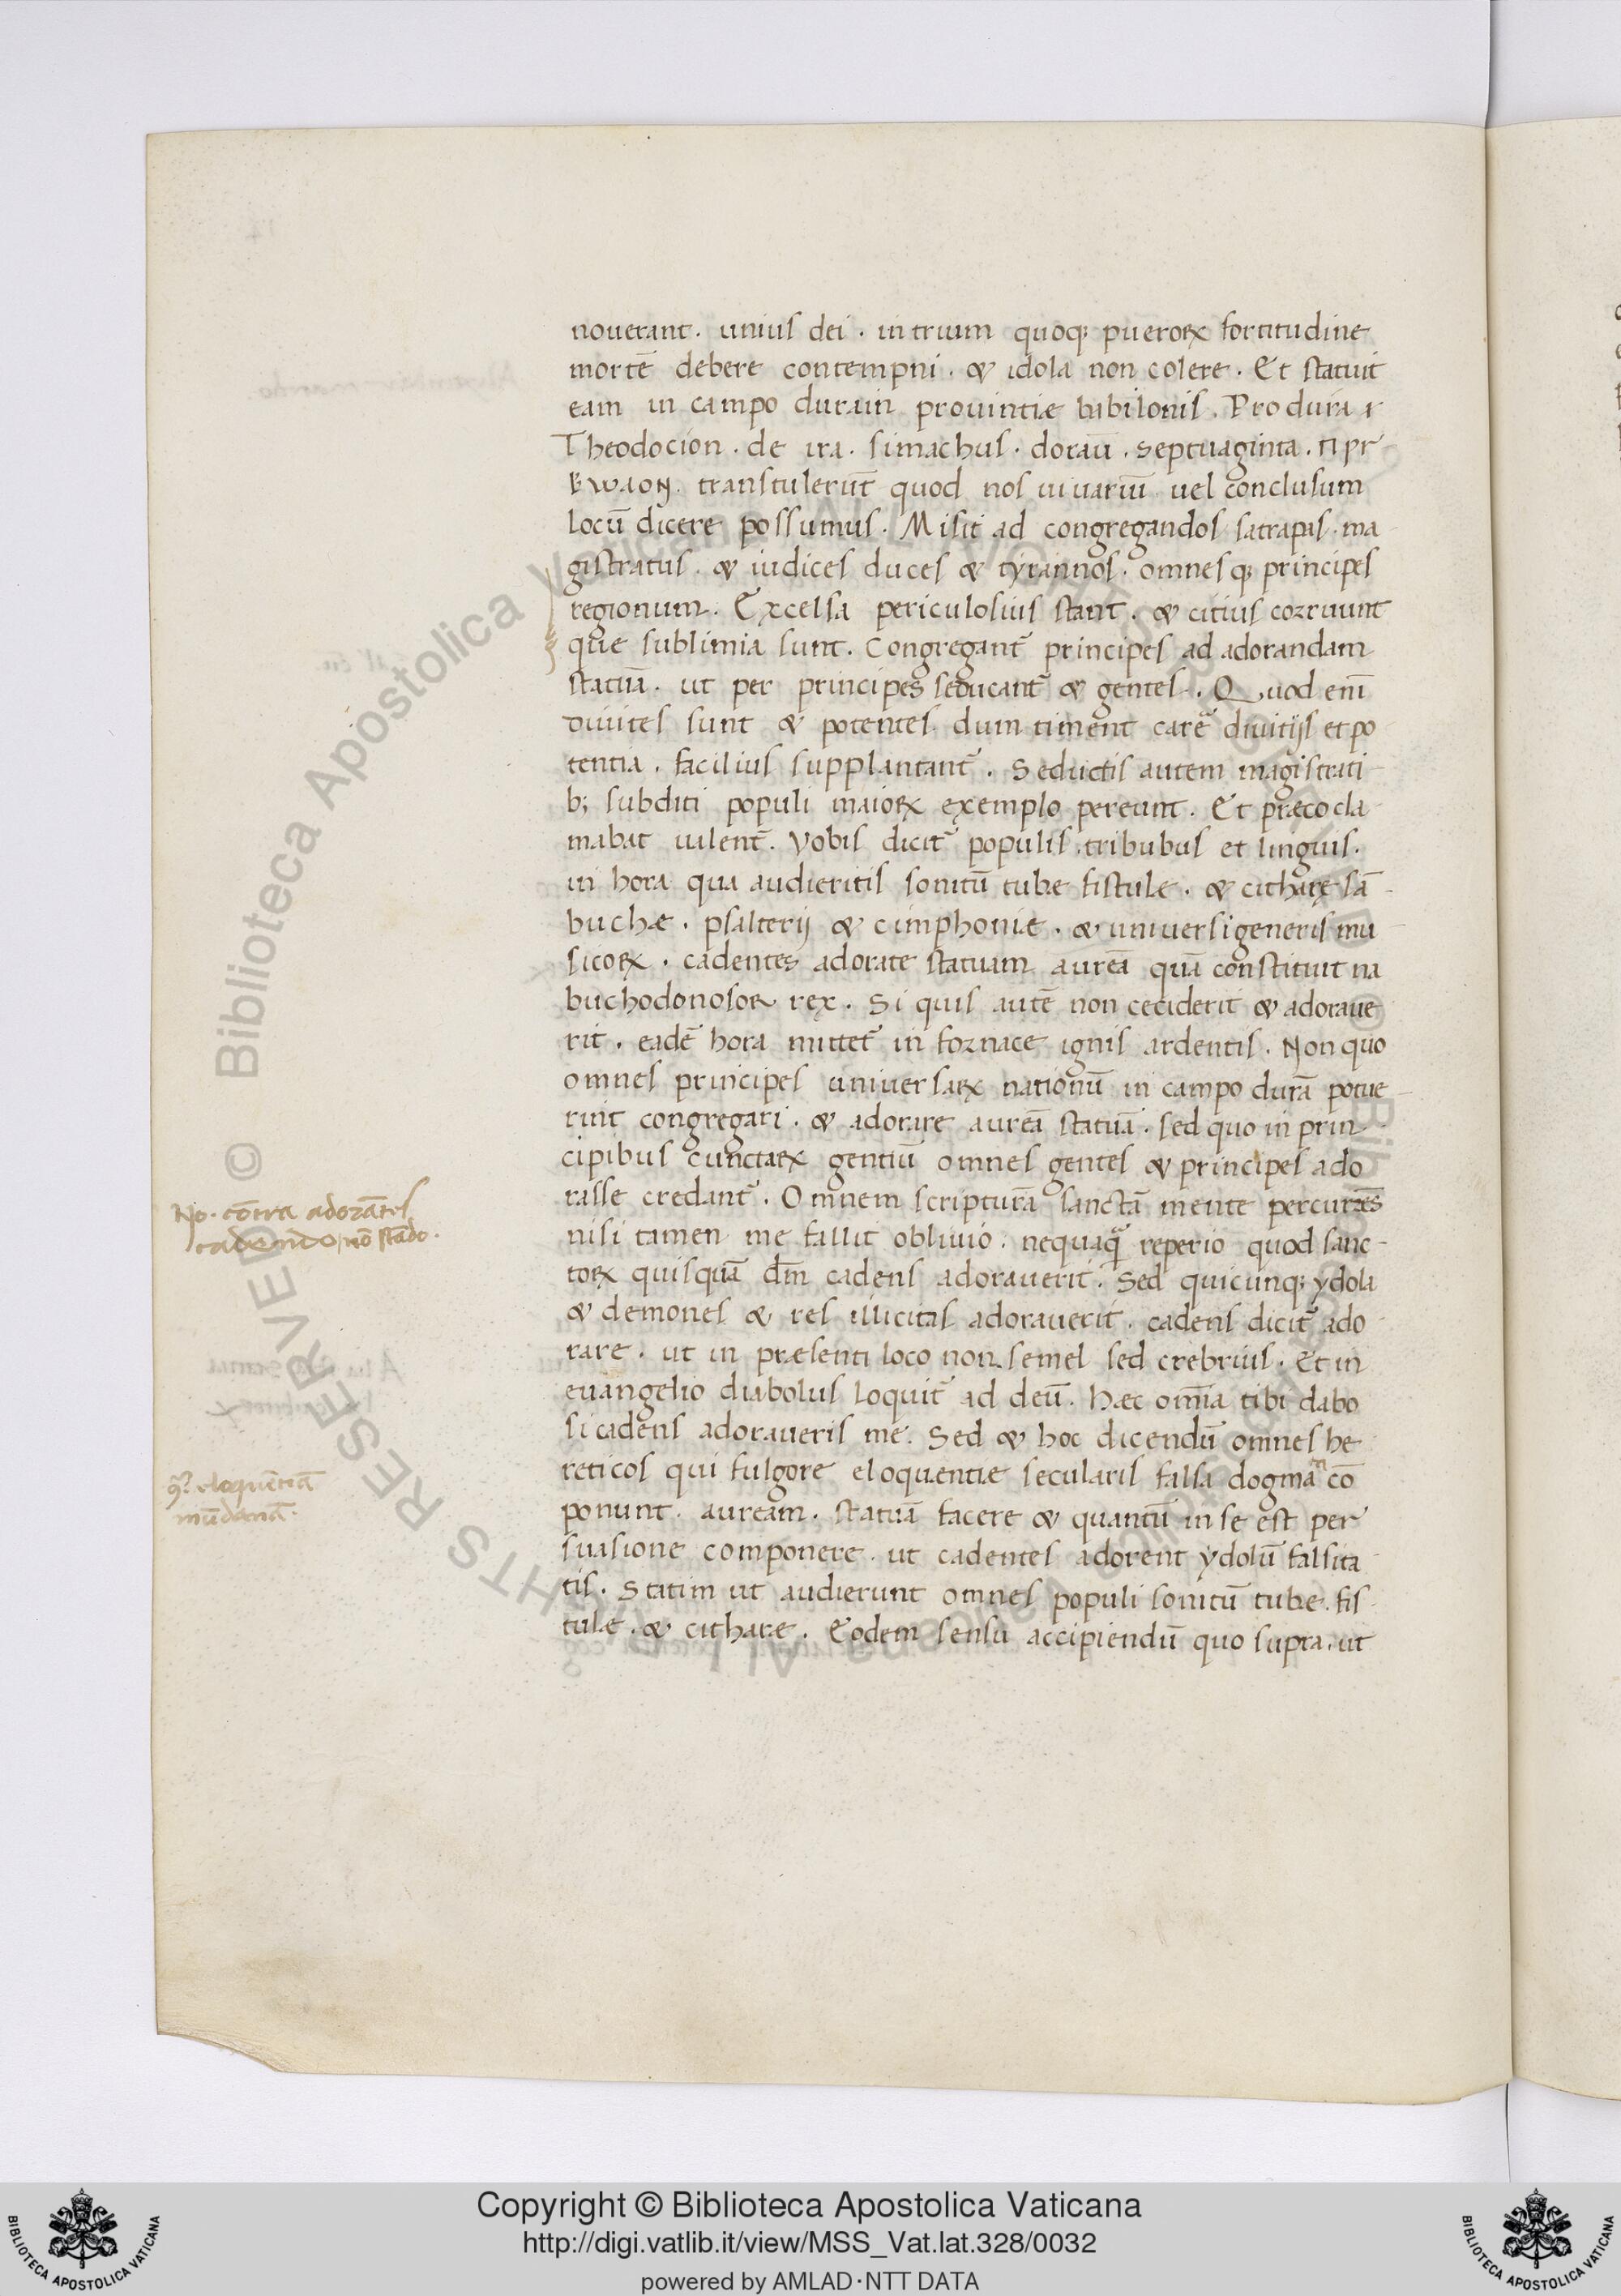 nouerant. unius dei. in trium quoq; pueroꝝ fortitudine
mortē debere contempni. & idola non colere. Et statuit
eam in campo duram prouintiæ babilonis. Pro dura
Theodocion. de ira. simachus. doraū. septuaginta.
transtulerūt quod nos uiuariū uel conclusum
locū dicere possumus. Misit ad congregandos satrapas. ma
gistratus. & iudices duces & tyrannos. omnesq; principes
regionum. Excelsa periculosius stant. & citius corruunt
quæ sublimia sunt. Congregant᷑ principes ad adorandam
statuā. ut per principes seducant᷑ & gentes. Quod eni᷑
diuites sunt & potentes dum timent carē diuitijs et po
tentia. facilius supplantant᷑. Seductis autem magistrati
b; subditi populi maioꝝ exemplo pereunt. Et præco cla
mabat ualent᷑. Vobis dicit᷑ populis. tribubus et linguis.
in hora qua audieritis sonitū tubæ fistule. & citharę sā
buchæ. psalterij & cimphoniæ. & uniuersi generis mu
sicoꝝ. cadentes adorate statuam aureā quā constituit na
buchodonosor rex. Si quis autē non ceciderit & adoraue
rit. eadē hora mittet᷑ in fornace ignis ardentis. Non quo
omnes principes uniuersaꝝ nationū in campo durā potue
rint congregari. & adorare aureā statuā. sed quo in prin
cipibus cunctaꝝ gentiū omnes gentes & principes ado
rasse credant᷑. Omnem scripturā sanctā mente percurrēs
nisi tamen me fallit obliuio. nequaq̄ reperio quod sanc
toꝝ quisquā dm̄ cadens adorauerit. Sed quicunq; ydola
& demones & res illicitas adorauerit. cadens dicit᷑ ado
rare. ut in præsenti loco non semel sed crebrius. Et in
euangelio diabolus loquit᷑ ad deū. Hæc omīa tibi dabo
si cadens adoraueris me. Sed & hoc dicendū omnes he
reticos qui fulgore eloquentiæ secularis falsa dogmata cō
ponunt. auream. statuā facere & quantū in se est per
suasione componere. ut cadentes adorent ydolū falsita
tis. Statim ut audierunt omnes populi sonitū tubæ. fis
tulæ. & citharæ. Eodem sensu accipiendū quo supra. ut
No. cōtra adorātes
cadendo, nō stādo.
9ᵃ. eloquētiā
mūdanā.
© Biblioteca Apostolica Vaticana ALL RIGHTS RESERVED
Copyright © Biblioteca Apostolica Vaticana
http://digi.vatlib.it/view/MSS_Vat.lat.328/0032
powered by AMLAD·NTT DATA
BIBLIOTECA APOSTOLICA VATICANA
BIBLIOTECA APOSTOLICA VATICANA